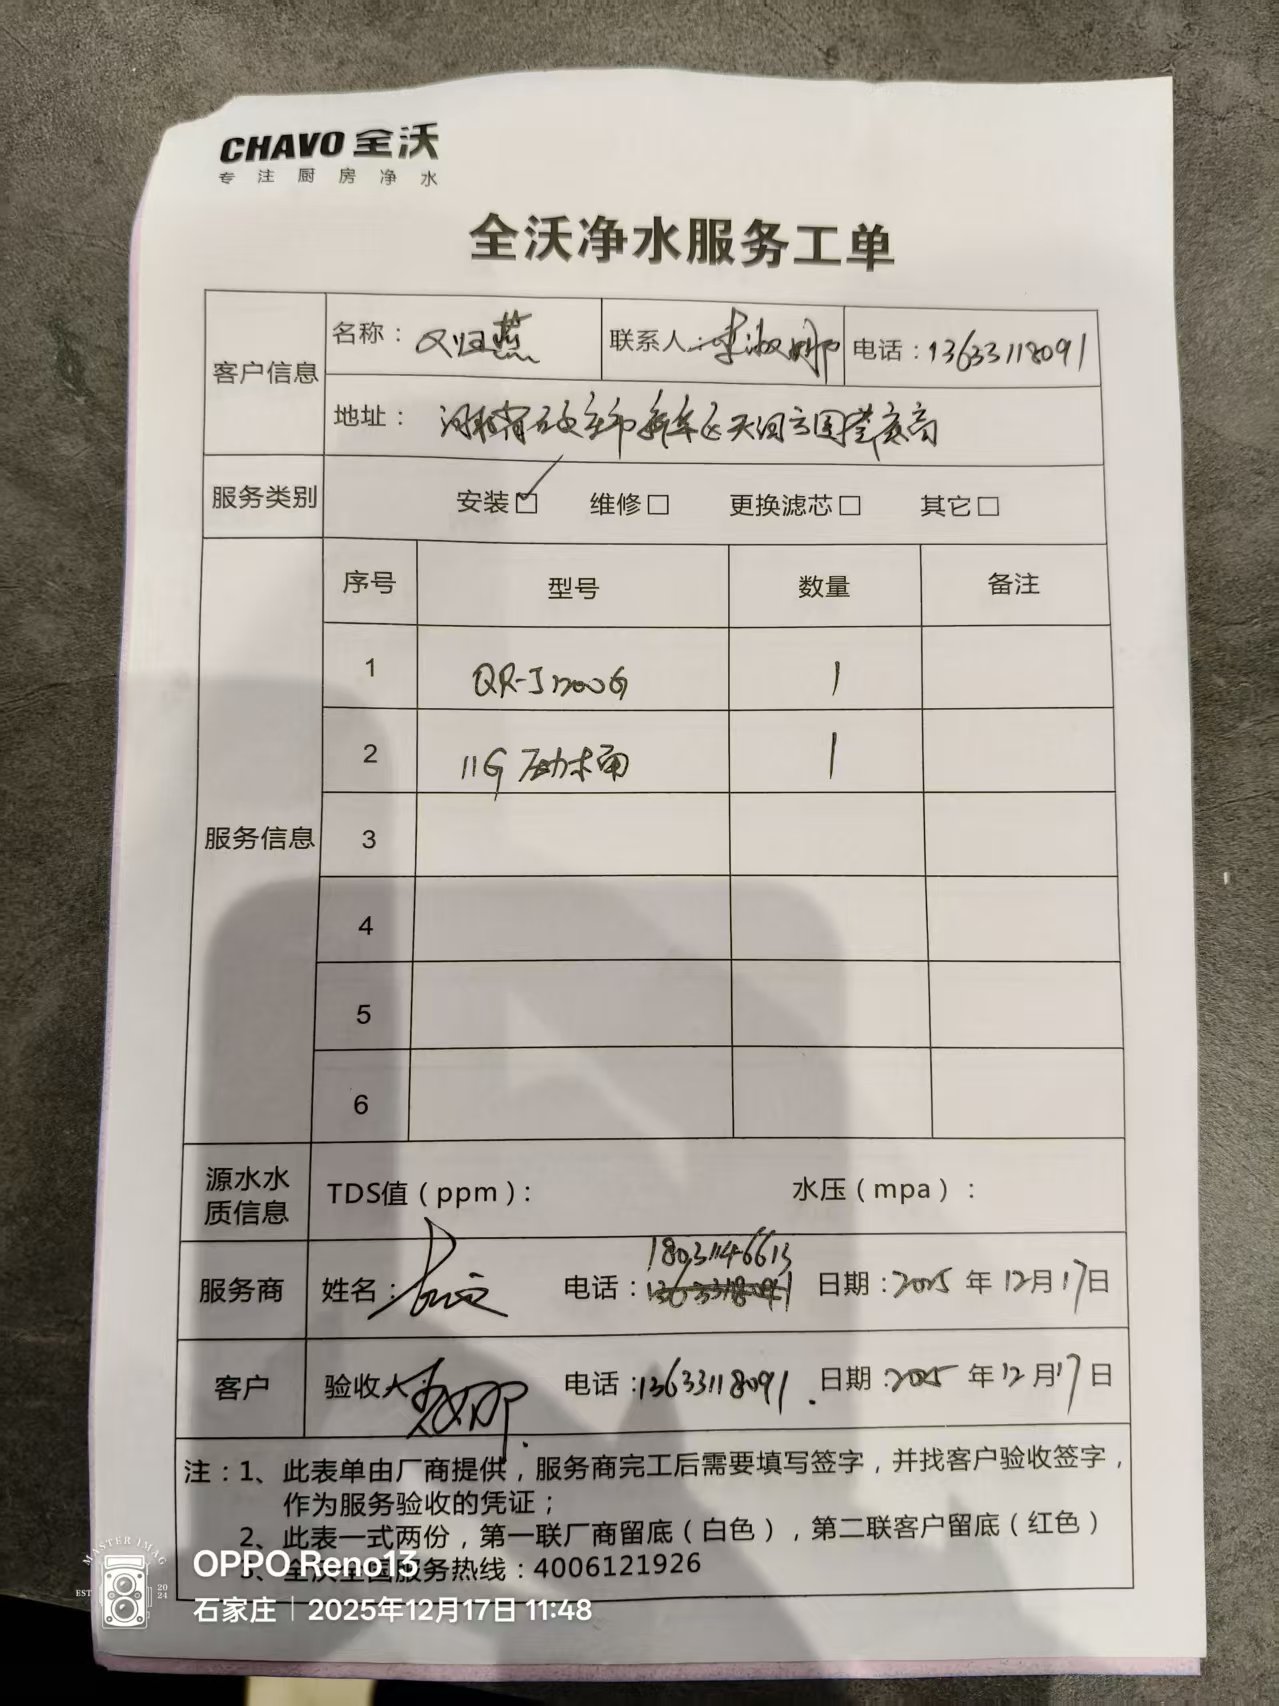 CHAVO 全沃
专注厨房净水
全沃净水服务工单
客户信息
名称：又归燕
联系人：李淑娜
电话：13633118091
地址：
服务类别
安装☑ 维修□ 更换滤芯□ 其它□
服务信息
序号 型号 数量 备注
1 QR-J1200G 1
2 11G 1
3
4
5
6
源水水质信息
TDS值（ppm）： 水压（mpa）：
服务商 姓名： 电话：18031146613 日期：2025年12月17日
13633118091
客户 验收人： 电话：13633118091. 日期：2025年12月17日
注：1、此表单由厂商提供，服务商完工后需要填写签字，并找客户验收签字，
作为服务验收的凭证；
2、此表一式两份，第一联厂商留底（白色），第二联客户留底（红色）
3、全沃全国服务热线：4006121926
MASTER IMAG
EST 2024
OPPO Reno13
石家庄｜2025年12月17日 11:48